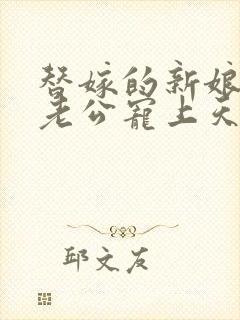 替嫁的新娘
老公宠上天
邱文友